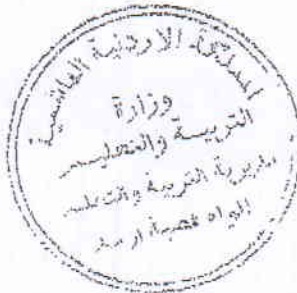 المملكة الاردنية الهاشمية
وزارة
التربية والتعليم
مديرية التربية والتعليم
لواء قصبة اربد